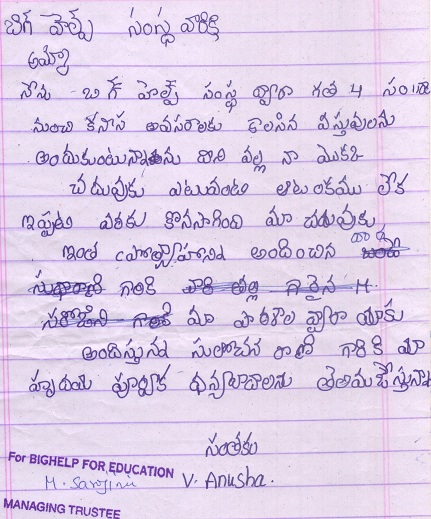 బిగ్ హెల్ప్ సంస్థ వారికి
అమ్మా
నేను బిగ్ హెల్ప్ సంస్థ ద్వారా గత 4 సం
నుంచి కనీస అవసరాలకు కావలసిన వస్తువులను
అందుకుంటున్నాను దీని వల్ల నా
చదువుకు ఎటువంటి ఆటంకము లేక
ఇప్పటి వరకు కొనసాగింది మా చదువుకు
ఇంత ప్రోత్సాహాన్ని అందించిన
గారికి H.
మా పాఠశాల ద్వారా మాకు
అందిస్తున్న సులోచన రాణి గారికి మా
హృదయ పూర్వక ధన్యవాదాలను తెలియచేస్తున్నా
సంతకం
For BIGHELP FOR EDUCATION
H. Sarojini V. Anusha.
MANAGING TRUSTEE